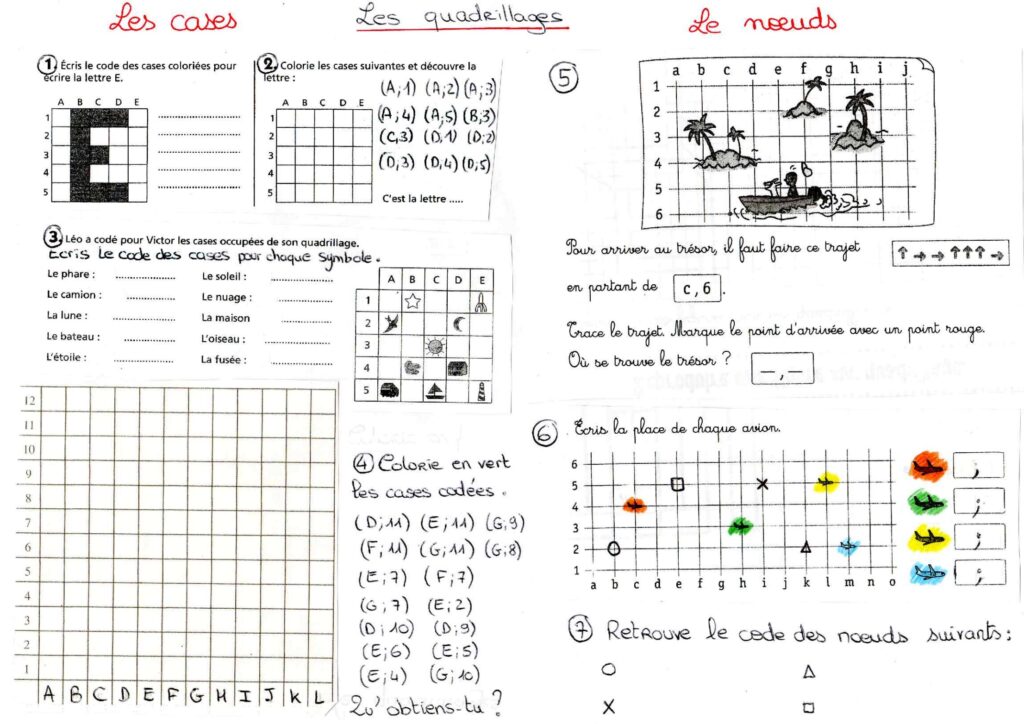 Les cases
Les quadrillages
Le nœuds
1. Écris le code des cases coloriées pour
écrire la lettre E.
A B C D E
1
2
3
4
5
2. Colorie les cases suivantes et découvre la
lettre :
A B C D E
1
2
3
4
5
(A;1) (A;2) (A;3)
(A;4) (A;5) (B;3)
(C,3) (D,1) (D;2)
(D,3) (D,4) (D;5)
C'est la lettre .....
3. Léo a codé pour Victor les cases occupées de son quadrillage.
Ecris le code des cases pour chaque symbole.
Le phare : ..............
Le camion : ..............
La lune : ..............
Le bateau : ..............
L'étoile : ..............
Le soleil : ..............
Le nuage : ..............
La maison ..............
L'oiseau : ..............
La fusée : ..............
A B C D E
1
2
3
4
5
12
11
10
9
8
7
6
5
4
3
2
1
A B C D E F G H I J K L
4 Colorie en vert
les cases codées.
(D;11) (E;11) (G;9)
(F;11) (G;11) (G;8)
(E;7) (F;7)
(G;7) (E;2)
(D;10) (D;9)
(E;6) (E;5)
(E;4) (G;10)
Qu'obtiens-tu ?
5
a b c d e f g h i j
1
2
3
4
5
6
Pour arriver au trésor, il faut faire ce trajet ↑ → → ↑ ↑ ↑ →
en partant de c,6.
Trace le trajet. Marque le point d'arrivée avec un point rouge.
Où se trouve le trésor ? _ , _
6 Écris la place de chaque avion.
6
5
4
3
2
1
a b c d e f g h i j k l m n o
;
;
;
;
7 Retrouve le code des nœuds suivants :